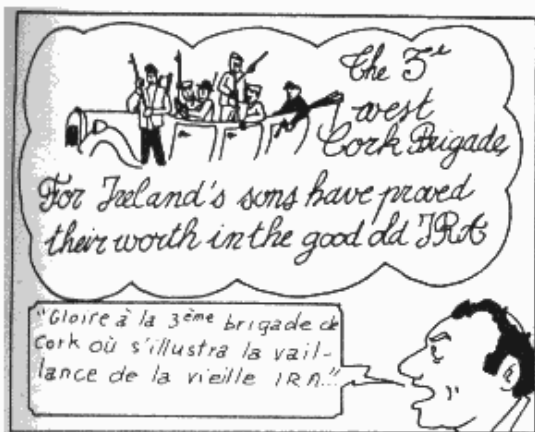 The 3e
west
Cork Brigade,
For Ireland's sons have proved
their worth in the good old IRA
"Gloire à la 3ème brigade de
Cork où s'illustra la vail-
lance de la vieille IRA..."